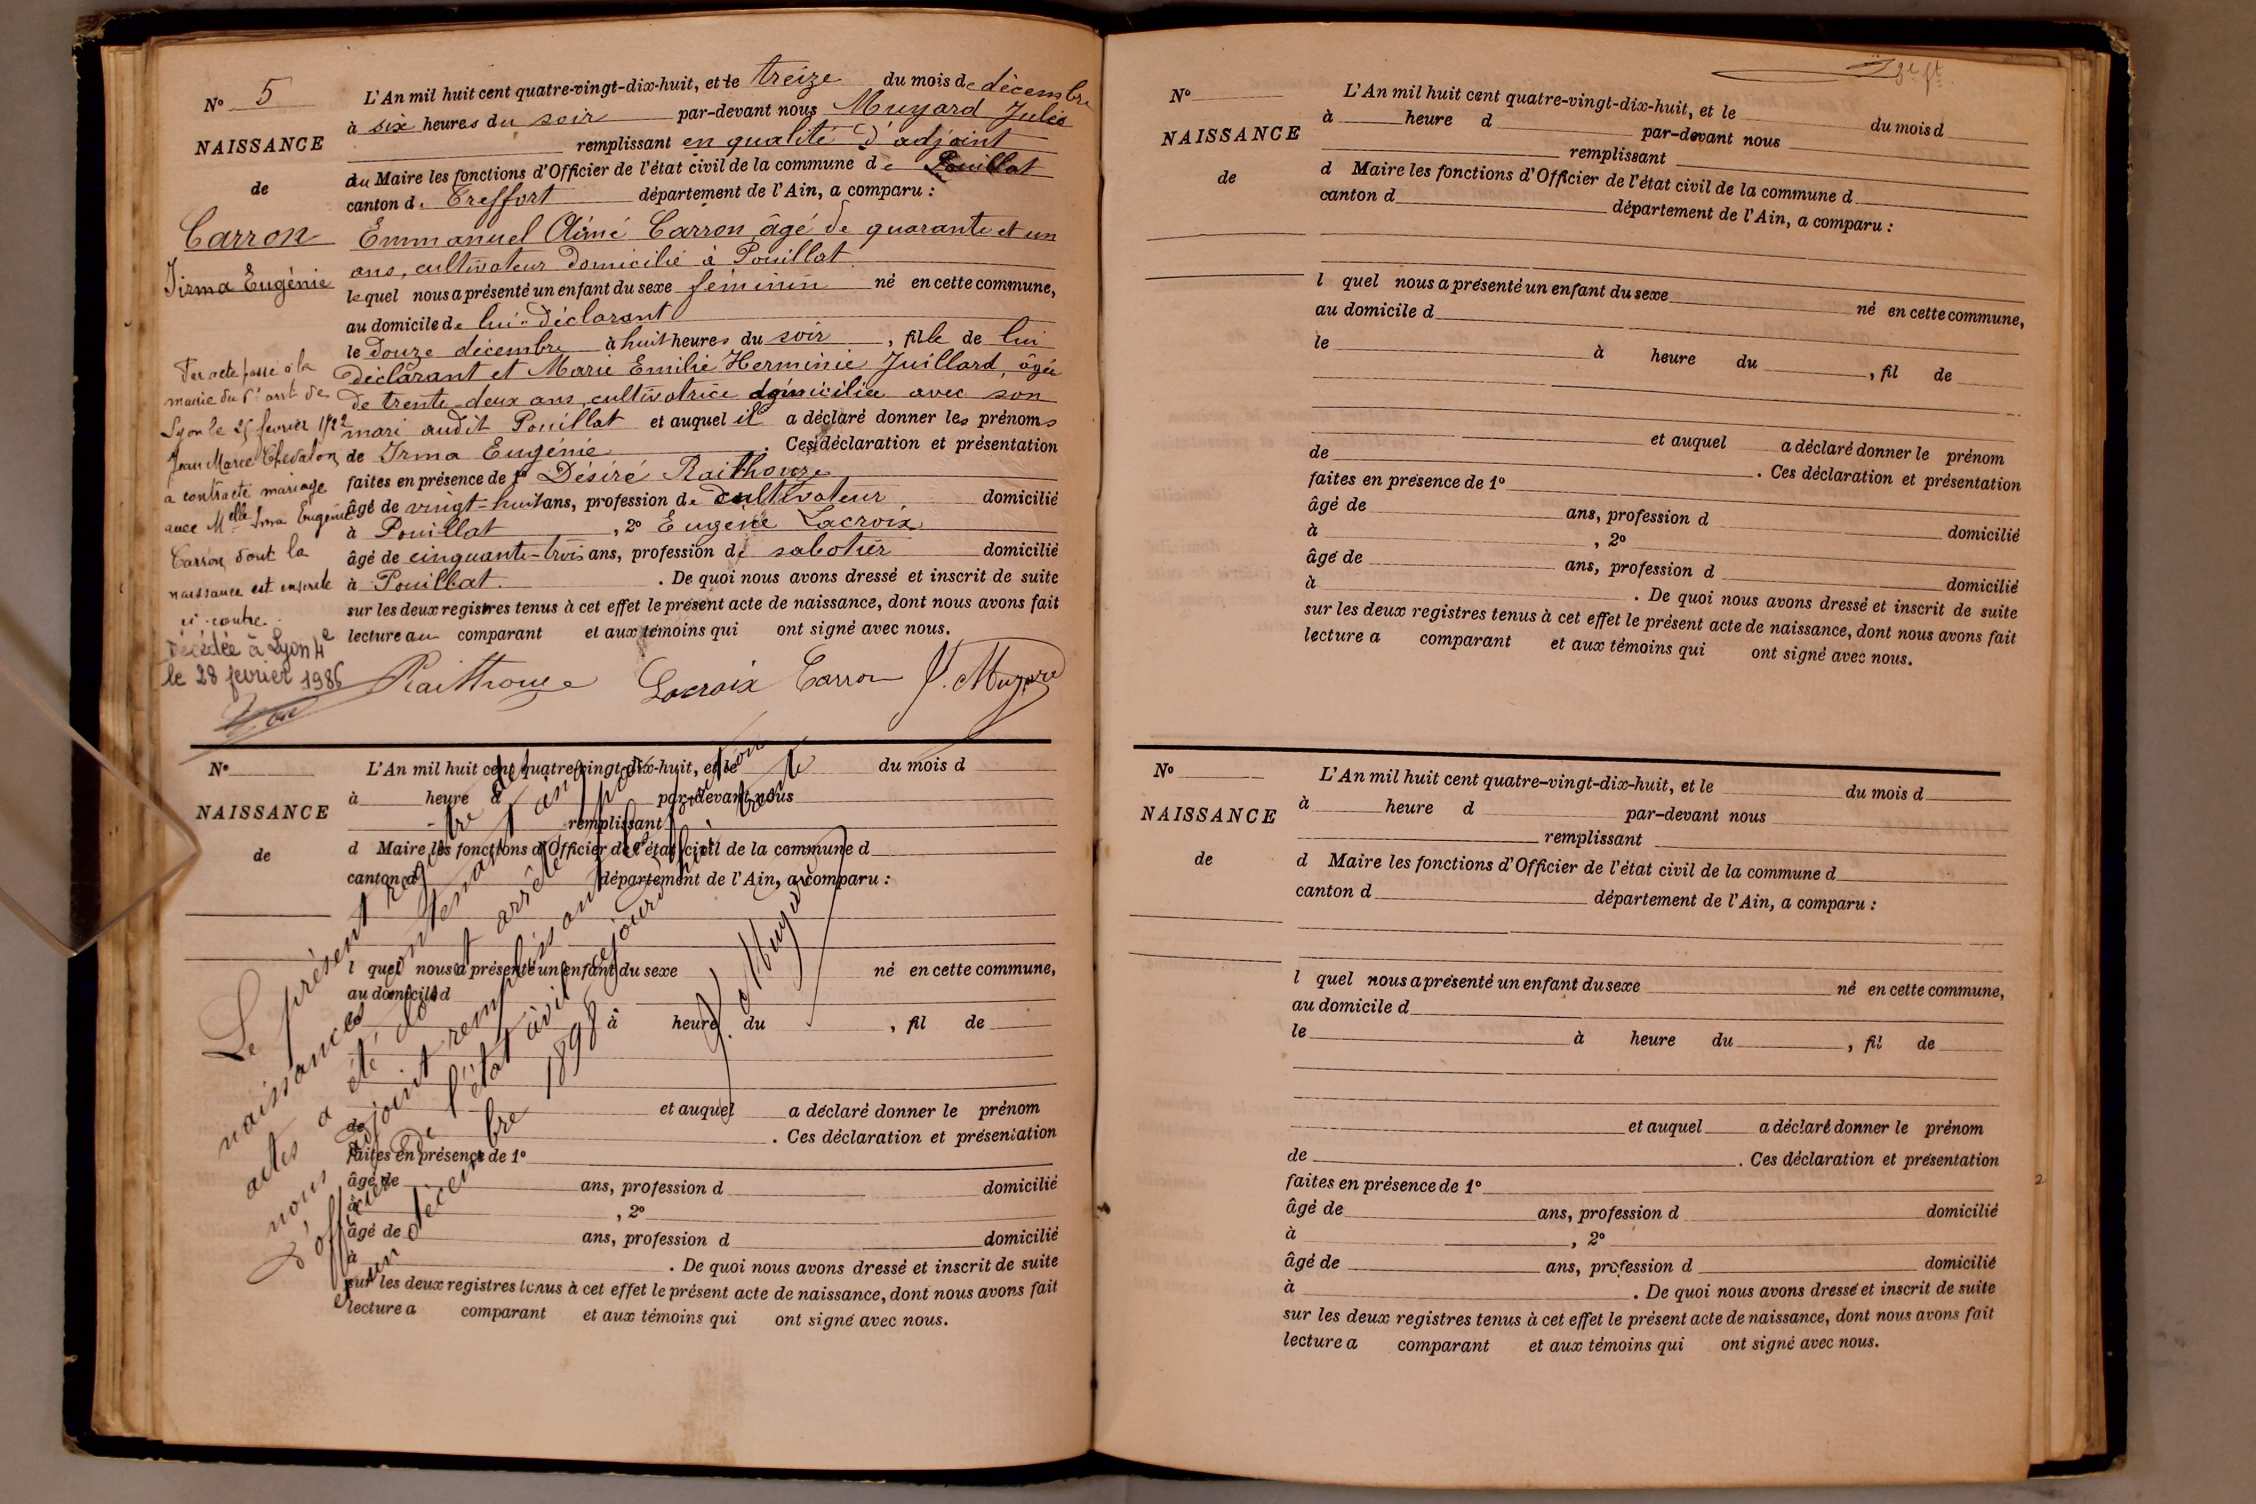 N° 5
NAISSANCE
de
Carron
Irma Eugénie
L'An mil huit cent quatre-vingt-dix-huit, et le treize du mois de décembre
à six heures du soir par-devant nous Muyard Jules
remplissant en qualité d'adjoint
du Maire les fonctions d'Officier de l'état civil de la commune de Pouillat
canton de Treffort département de l'Ain, a comparu :
Emmanuel Aimé Carron âgé de quarante et un
ans, cultivateur domicilié à Pouillat
lequel nous a présenté un enfant du sexe féminin né en cette commune,
au domicile de lui-déclarant
le douze décembre à huit heures du soir, fille de lui
déclarant et Marie Emilie Herminie Juillard, âgée
de trente-deux ans, cultivatrice domiciliée avec son
mari audit Pouillat et auquel il a déclaré donner les prénoms
de Irma Eugénie. Ces déclaration et présentation
faites en présence de 1° Désiré Raithouze
âgé de vingt-huit ans, profession de cultivateur domicilié
à Pouillat, 2° Eugène Lacroix
âgé de cinquante-trois ans, profession de sabotier domicilié
à Pouillat. De quoi nous avons dressé et inscrit de suite
sur les deux registres tenus à cet effet le présent acte de naissance, dont nous avons fait
lecture au comparant et aux témoins qui ont signé avec nous.
Raithouze Lacroix Carron J. Muyard
Par acte passé à la
mairie du 1er arrt de
Lyon le 25 février 1922
Jean Marie Chevalon
a contracté mariage
avec Melle Irma Eugénie
Carron dont la
naissance est inscrite
ci-contre.
Décédée à Lyon 4e
le 28 février 1986
N°
NAISSANCE
de
L'An mil huit cent quatre-vingt-dix-huit, et le du mois d
à heure d par-devant nous
remplissant
d Maire les fonctions d'Officier de l'état civil de la commune d
canton d département de l'Ain, a comparu :
l quel nous a présenté un enfant du sexe né en cette commune,
au domicile d
à heure du , fil de
et auquel a déclaré donner le prénom
de . Ces déclaration et présentation
faites en présence de 1°
âgé de ans, profession d domicilié
à , 2°
âgé de ans, profession d domicilié
à . De quoi nous avons dressé et inscrit de suite
sur les deux registres tenus à cet effet le présent acte de naissance, dont nous avons fait
lecture a comparant et aux témoins qui ont signé avec nous.
Le présent registre des
naissances contenant cinq
actes a été clos et arrêté par
nous adjoint remplissant les fonctions
d'officier de l'état civil cejourd'hui trente
et un décembre 1898
J. Muyard
N°
NAISSANCE
de
L'An mil huit cent quatre-vingt-dix-huit, et le du mois d
à heure d par-devant nous
remplissant
d Maire les fonctions d'Officier de l'état civil de la commune d
canton d département de l'Ain, a comparu :
l quel nous a présenté un enfant du sexe né en cette commune,
au domicile d
le à heure du , fil de
et auquel a déclaré donner le prénom
de . Ces déclaration et présentation
faites en présence de 1°
âgé de ans, profession d
à , 2° domicilié
âgé de ans, profession d
à domicilié
. De quoi nous avons dressé et inscrit de suite
sur les deux registres tenus à cet effet le présent acte de naissance, dont nous avons fait
lecture a comparant et aux témoins qui ont signé avec nous.
N°
NAISSANCE
de
L'An mil huit cent quatre-vingt-dix-huit, et le du mois d
à heure d par-devant nous
remplissant
d Maire les fonctions d'Officier de l'état civil de la commune d
canton d département de l'Ain, a comparu :
l quel nous a présenté un enfant du sexe né en cette commune,
au domicile d
le à heure du , fil de
et auquel a déclaré donner le prénom
de . Ces déclaration et présentation
faites en présence de 1°
âgé de ans, profession d domicilié
à , 2°
âgé de ans, profession d domicilié
à . De quoi nous avons dressé et inscrit de suite
sur les deux registres tenus à cet effet le présent acte de naissance, dont nous avons fait
lecture a comparant et aux témoins qui ont signé avec nous.